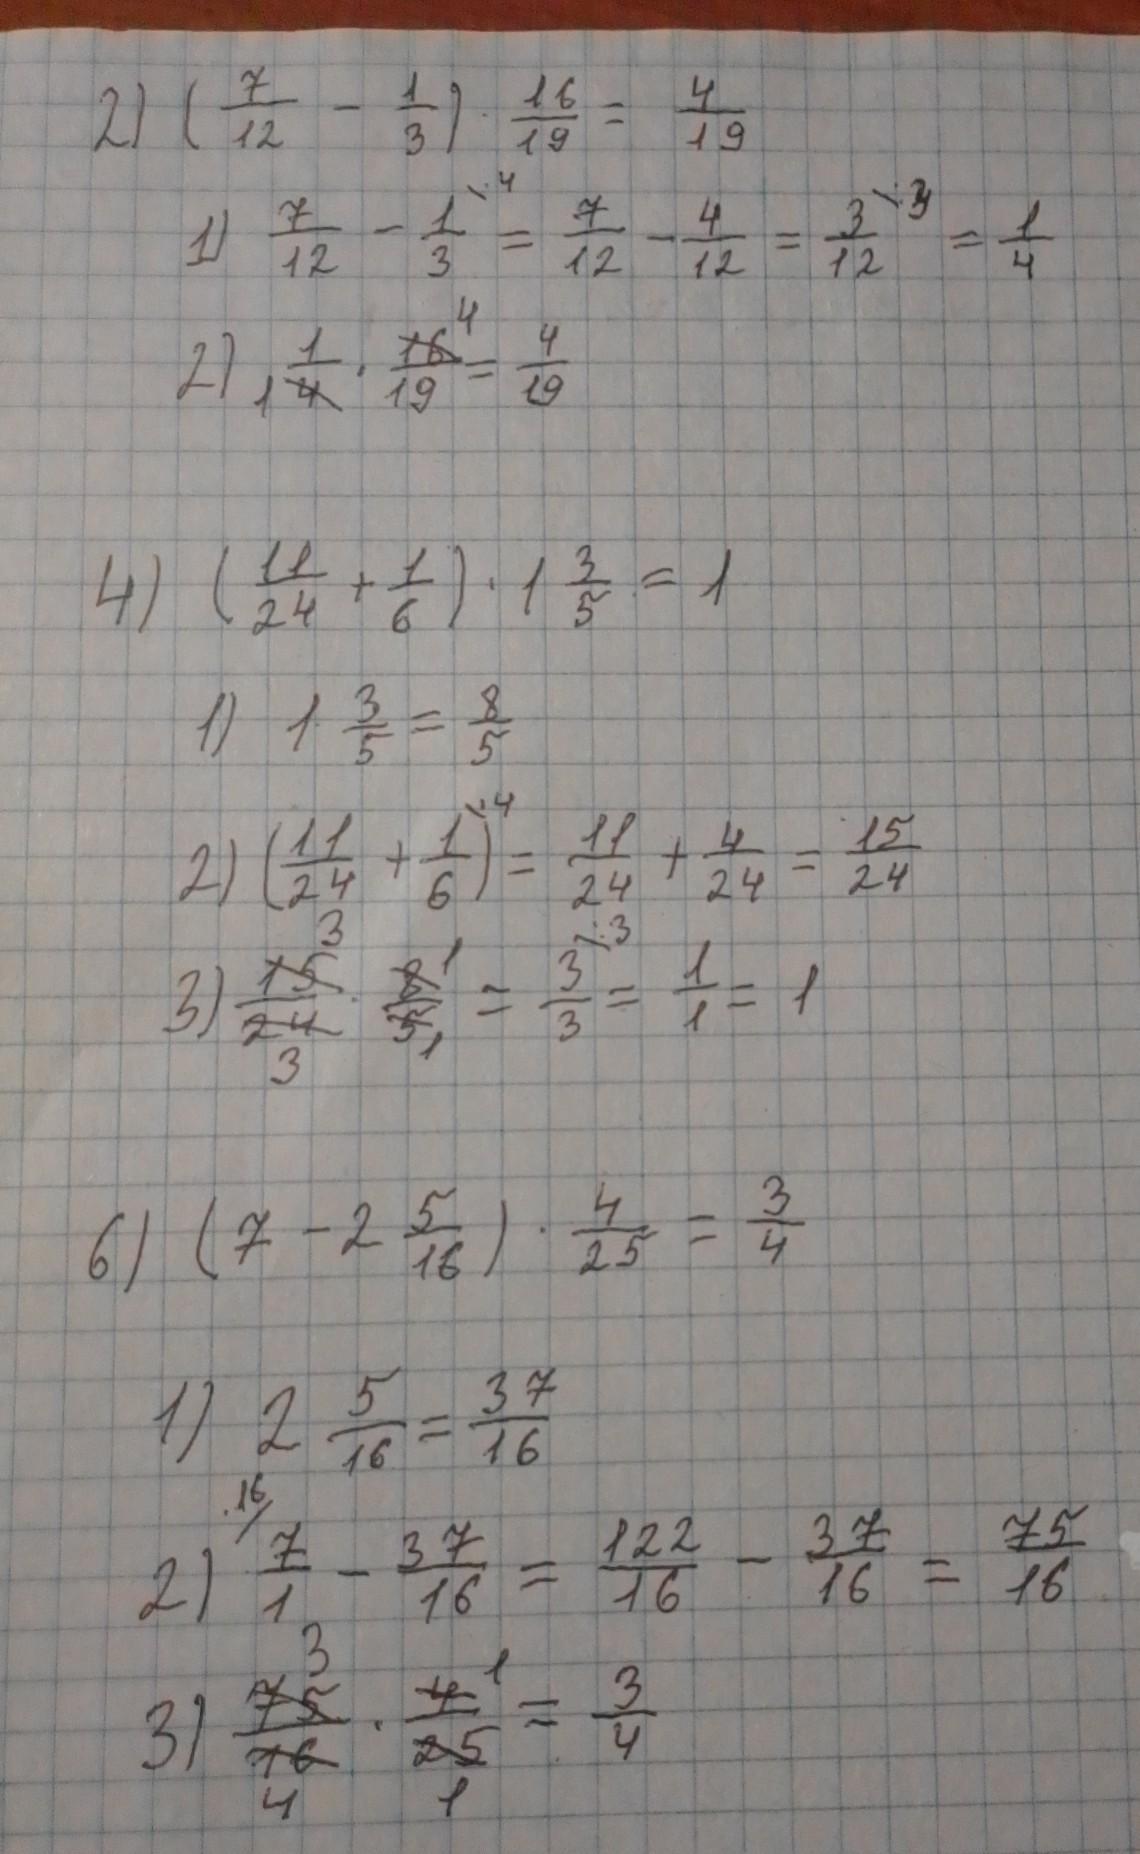 2) (7/12 - 1/3) · 16/19 = 4/19
1) 7/12 - 1/3 \·4 = 7/12 - 4/12 = 3/12 \:3 = 1/4
2) 1/4 1 · 16/19 4 = 4/19
4) (11/24 + 1/6) · 1 3/5 = 1
1) 1 3/5 = 8/5
2) (11/24 + 1/6) \·4 = 11/24 + 4/24 = 15/24
3) 15/24 3 3 · 8/5 1 1 = 3/3 \:3 = 1/1 = 1
6) (7 - 2 5/16) · 4/25 = 3/4
1) 2 5/16 = 37/16
2) ·16/ 7/1 - 37/16 = 122/16 - 37/16 = 75/16
3) 75/16 3 4 · 4/25 1 1 = 3/4